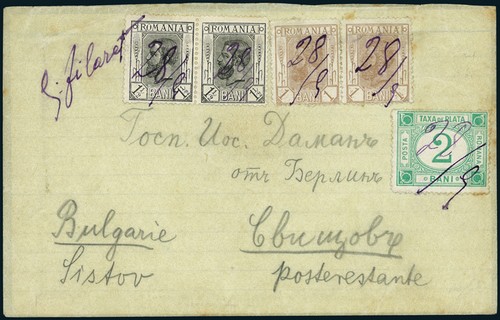 G. filaret
ROMANIA ROMANIA ROMANIA ROMANIA
28/9 28/9 28/9 28/9
BANI BANI BANI BANI
TAXA DE PLATA
POSTA 2 ROMANA
BANI
28/9
Госп. Иос. Даманъ
отъ Берлинъ
Bulgarie Свищовъ
Sistov posterestante